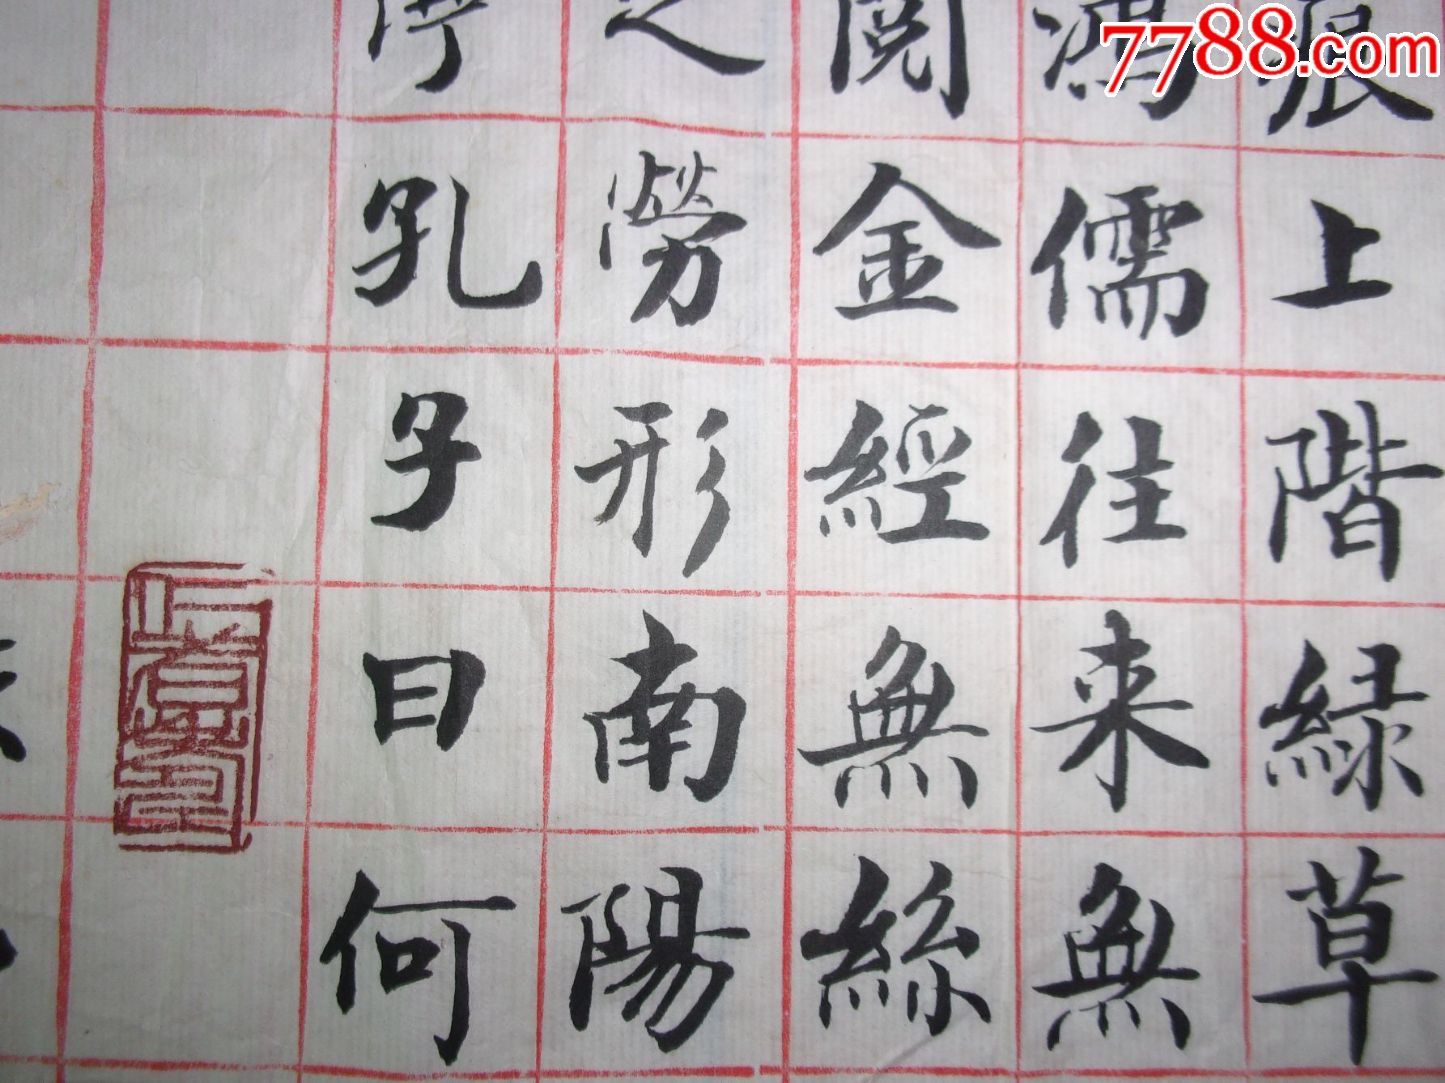 7788.com
痕上階緑草
鴻儒往来無
閱金經無絲
之勞形南陽
孔子曰何